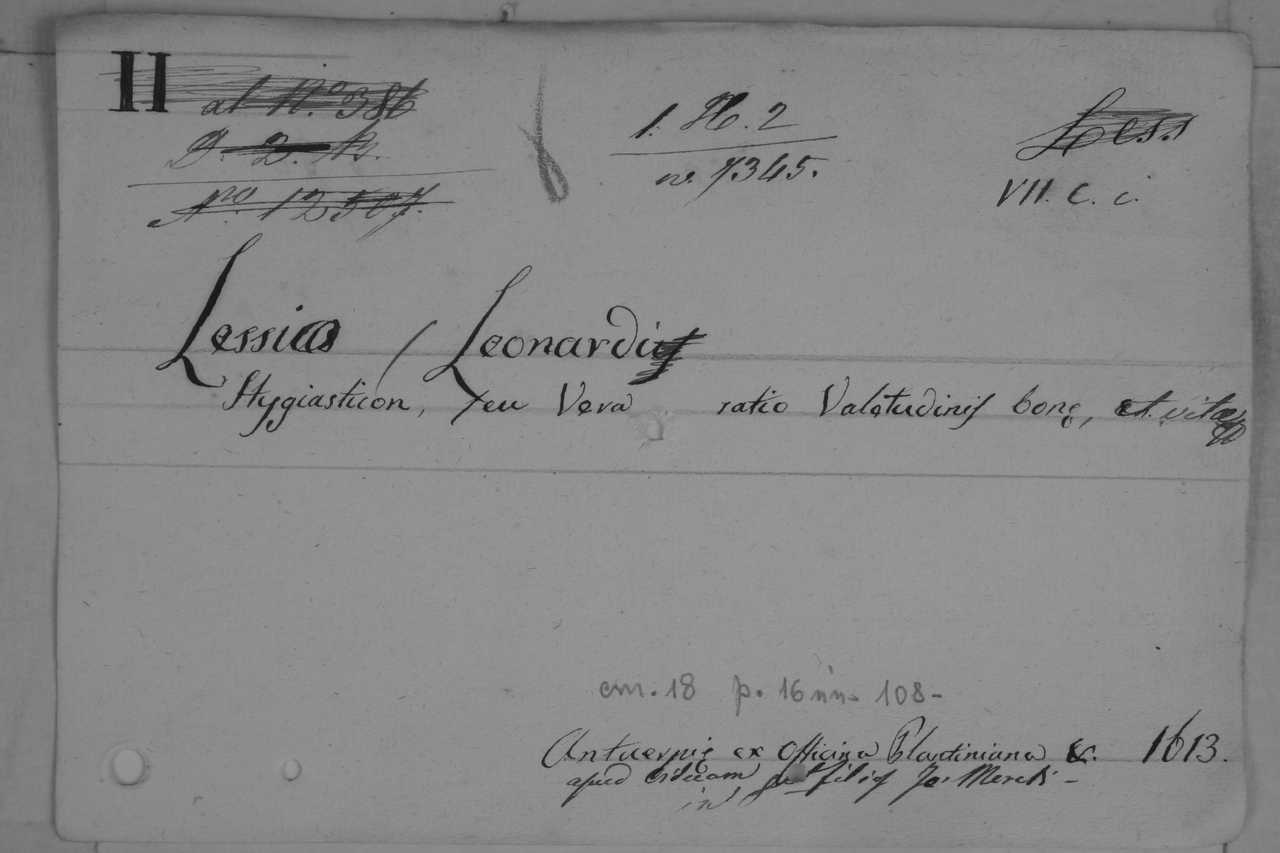 II
al N.º 386
D. 2.
Nro. 12507.
1. H. 2
n. 7345.
Less
VII. c. i.
Lessius / Leonardus
Hygiasticon, seu Vera ratio Valetudinis bonę, et vitae
cm. 18 p. 16 nn. 108-
Antuerpię ex officina Plantiniana &. 1613.
apud viduam et filios Jo. Moreti -
in